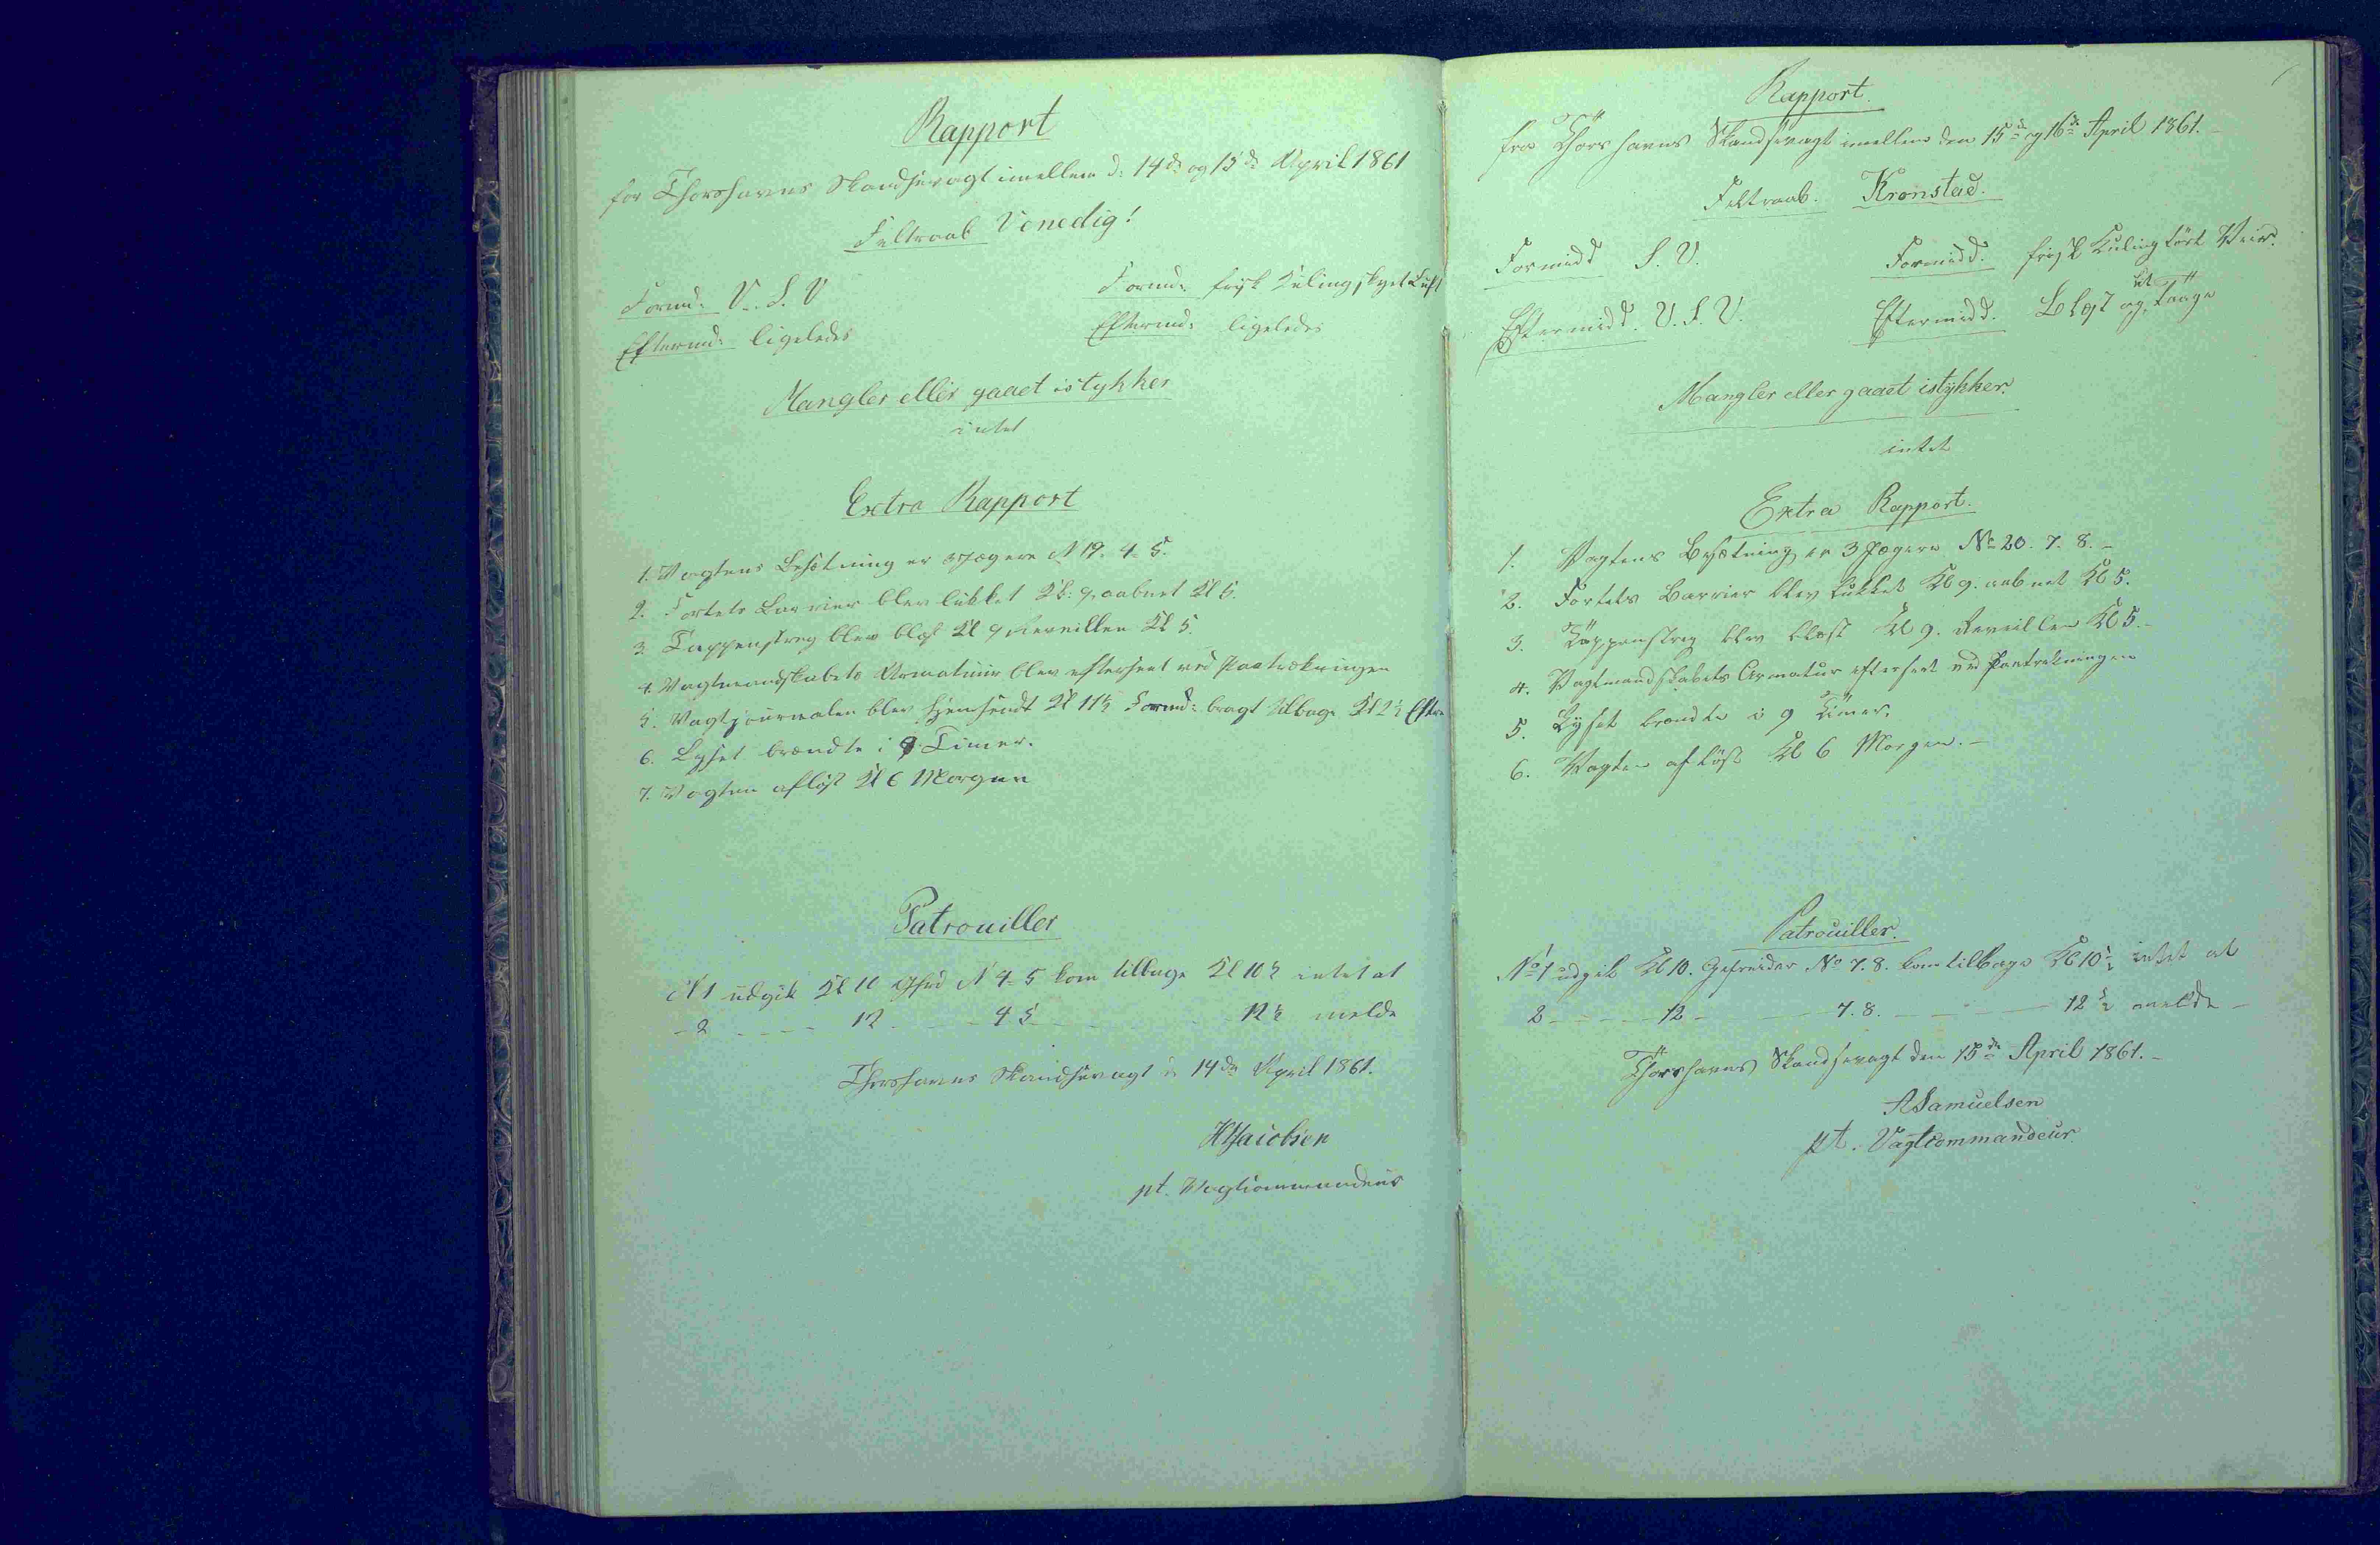 Rapport
for Thorshavns Skandsevagt imellem d: 14de og 15de April 1861
Feltraab Venedig!
Formd: V. S. V
Formd: frisk Kuling, skyet Luft
Eftermd: ligeledes
Eftermd: ligeledes
Mangler eller gaaet istykker
intet
Extra Rapport
1. Vagtens Besætning er 3 Jægere N 19. 4. 5.
2. Fortets Barrier blev lukket Kl: 9, aabnet Kl 5.
3. Tappenstreg blev blæst Kl 9 Reveillen Kl 5.
4. Vagtmandskabets Armatuur blev efterseet ved Paatrækningen
5. Vagtjournalen blev hjemsendt Kl 11½ Formd: bragt tilbage Kl 2½ Efterm
6. Lyset brændte i 9 Timer.
7. Vagten afløst Kl 6 Morgen
Patrouiller
N 1 udgik Kl 10 Gfrd N 4-5 kom tilbage Kl 10½ intet at
- 2 - - - - 12 - - - 4 5 - - - 12½ melde
Thorshavns Skandsevagt d 14de April 1861.
HJacobsen
pt. Vagtcommandeur
Rapport.
fra Thorshavns Skandsevagt imellem den 15de og 16de April 1861.
Feltraab. Kronstad.
Formidd S. V.
Formidd. frisk Kuling tört Veir.
Eftermidd. V. S. V.
Eftermidd. Blæst og Taage
Mangler eller gaaet istykker.
intet
Extra Rapport.
1. Vagtens Besætning er 3 Jægere No 20. 7. 8. -
2. Fortets Barrier blev lukket Kl 9. aabnet Kl 5.
3. Tappenstreg blev blæst Kl 9. Reveillen Kl 5. -
4. Vagtmandskabets Armatur efterseet ved Paatrækningen
5. Lyset brændte i 9 Timer.
6. Vagten aflöst Kl 6 Morgen. -
Patrouiller.
No 1 udgik Kl 10. Gefreider No 7. 8. kom tilbage Kl 10½ intet at
2 - - - 12 - - - 7. 8. - - - 12½ melde -
Thorshavns Skandsevagt den 15de April 1861. -
ASamuelsen
pt. Vagtcommandeur.